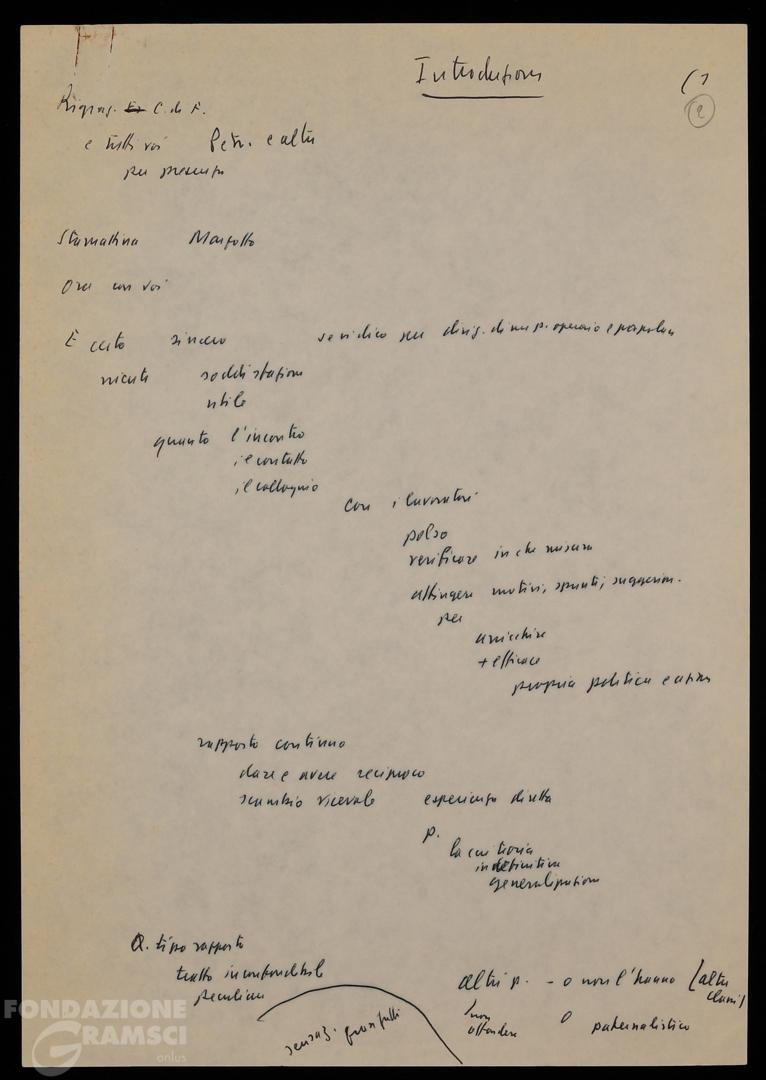 Introduzione
(1
2
Ringraz. C. di F.
e tutti voi Petr. e altri
per presenza
Stamattina Marzotto
Ora con voi
È certo sincero se vi dico per dirig. di un p. operaio e popolare
niente soddisfazione
utile
quanto l'incontro
il contatto
il colloquio
con i lavoratori
polso
verificare in che misura
attingere motivi, spunti, suggerim.
per
arricchire
+ efficace
propria politica e azione
rapporto continuo
dare e avere reciproco
scambio vicevole esperienza diretta
p.
la cui teoria
in definitiva
generalizzazione
Q. tipo rapporto
tratto inconfondibile
peculiare
altri p. - o non l'hanno (altre
classi)
(non
offendere o paternalistico
FONDAZIONE
GRAMSCI
onlus